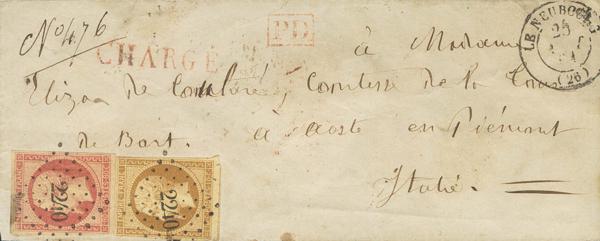 No 476
CHARGÉ
PD
LE NEUBOURG
25
(26)
à Madame
Eliza de Comtesse de la
de Bard. à Aoste en Piémont
Italie.
2240
2240